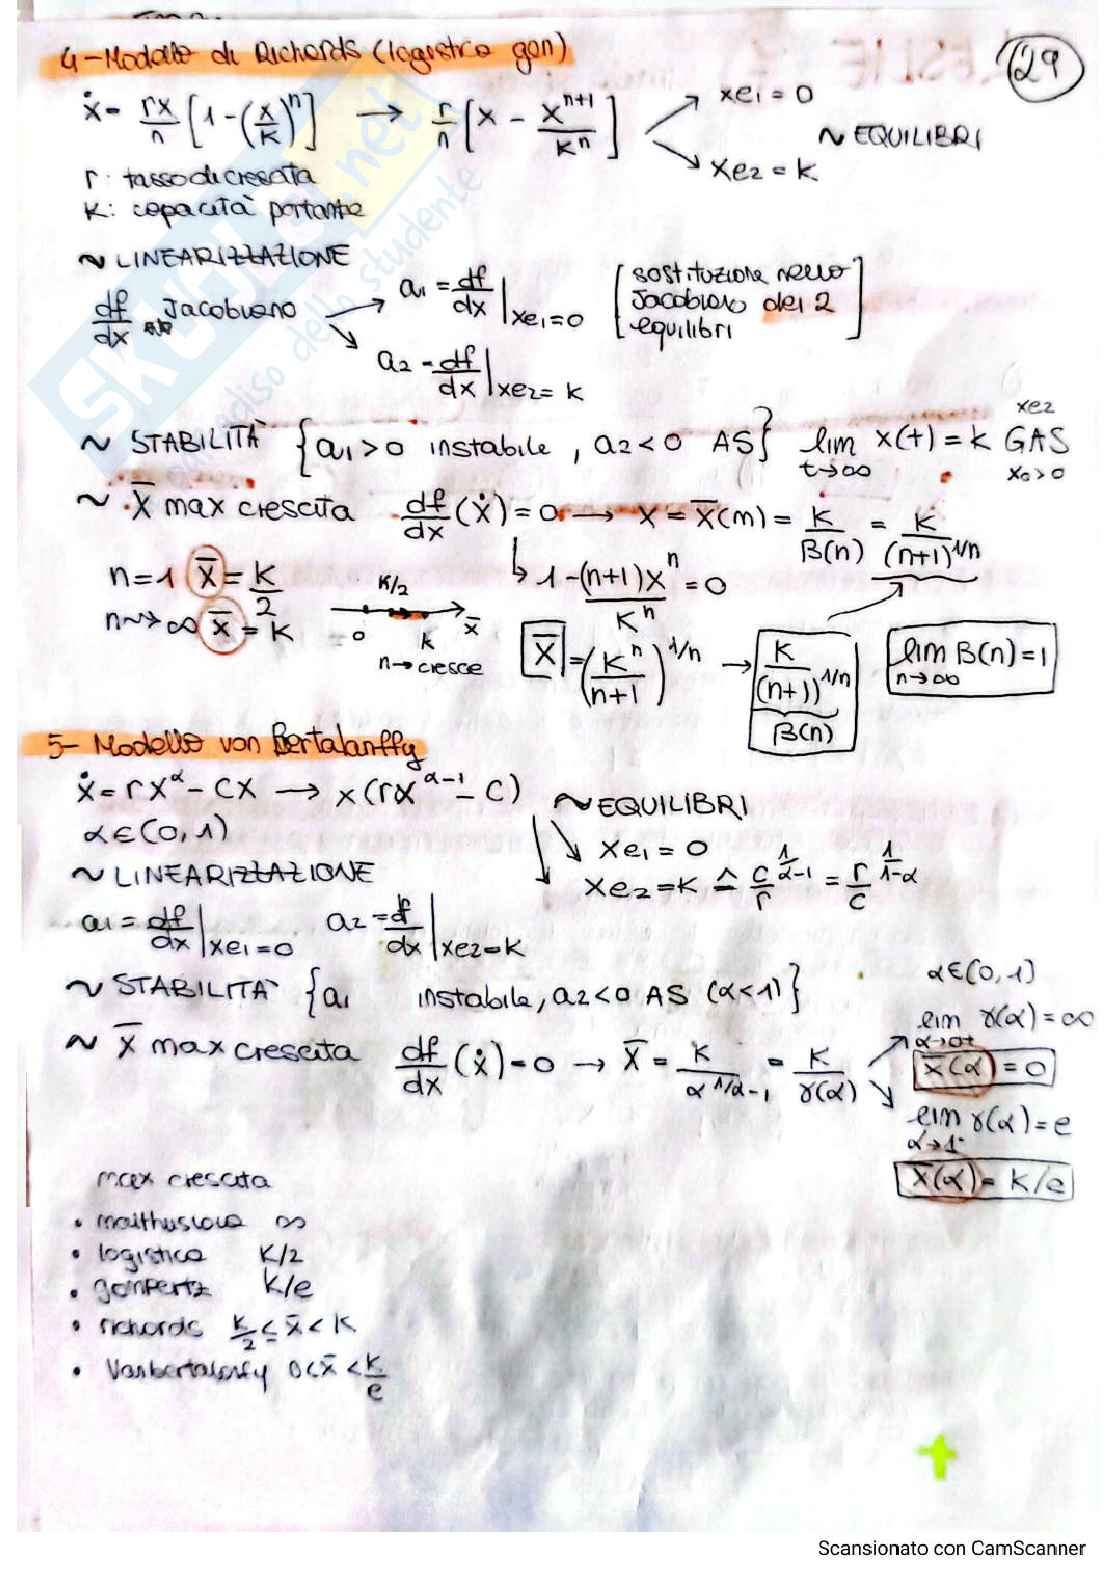 4-Modello di Richards (logistico gen)
29
ẋ = rx/n [1-(x/k)^n] → r/n [x - x^(n+1)/k^n]
xe1 = 0
xe2 = k
~ EQUILIBRI
r: tasso di crescita
K: capacità portante
~ LINEARIZZAZIONE
df/dx Jacobiano
a1 = df/dx |xe1=0
a2 = df/dx |xe2=k
[sostituzione nello
Jacobiano dei 2
equilibri]
~ STABILITÀ {a1>0 instabile, a2<0 AS} lim t→∞ x(t) = k GAS xe2 x0>0
~ x̄ max crescita df/dx (ẋ) = 0 → x = x̄(m) = k/B(n) = k/(n+1)^1/n
n=1 x̄ = k/2
n→∞ x̄ = k
k/2
0 k x̄
n→cresce
1-(n+1)x^n/k^n = 0
x̄ = (k^n/(n+1))^1/n → k/(n+1)^1/n
B(n)
lim n→∞ B(n)=1
5- Modello von Bertalanffy
ẋ = rx^α - cx → x(rx^(α-1) - c)
α∈(0,1)
~ EQUILIBRI
xe1 = 0
xe2 = k ≙ c/r ^ 1/α-1 = r/c ^ 1/1-α
~ LINEARIZZAZIONE
a1 = df/dx |xe1=0 a2 = df/dx |xe2=k
~ STABILITÀ {a1 instabile, a2<0 AS (α<1)}
~ x̄ max crescita df/dx (ẋ) = 0 → x̄ = k/α^1/α-1 = k/γ(α)
α∈(0,1)
lim α→0+ γ(α) = ∞
x̄(α) = 0
lim α→1- γ(α) = e
x̄(α) = k/e
max crescita
• malthusiana ∞
• logistica K/2
• gompertz K/e
• richards k/2 ≤ x̄ < k
• Vonbertalanffy 0<x̄<k/e
+
Scansionato con CamScanner